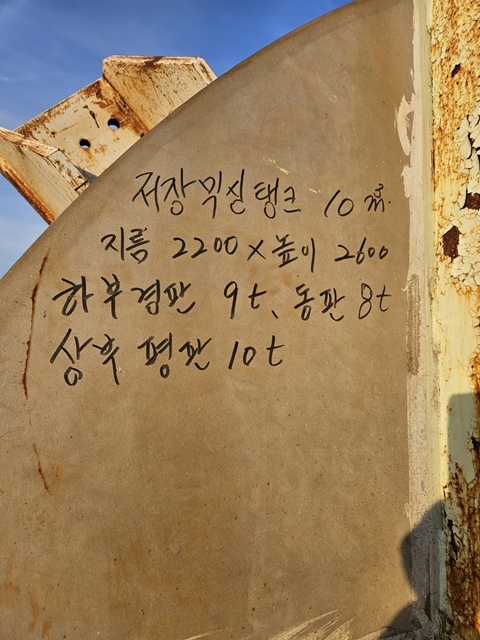 저장믹싱탱크 10㎥.
지름 2200×높이 2600
하부경판 9t、동판 8t
상부 평판 10t